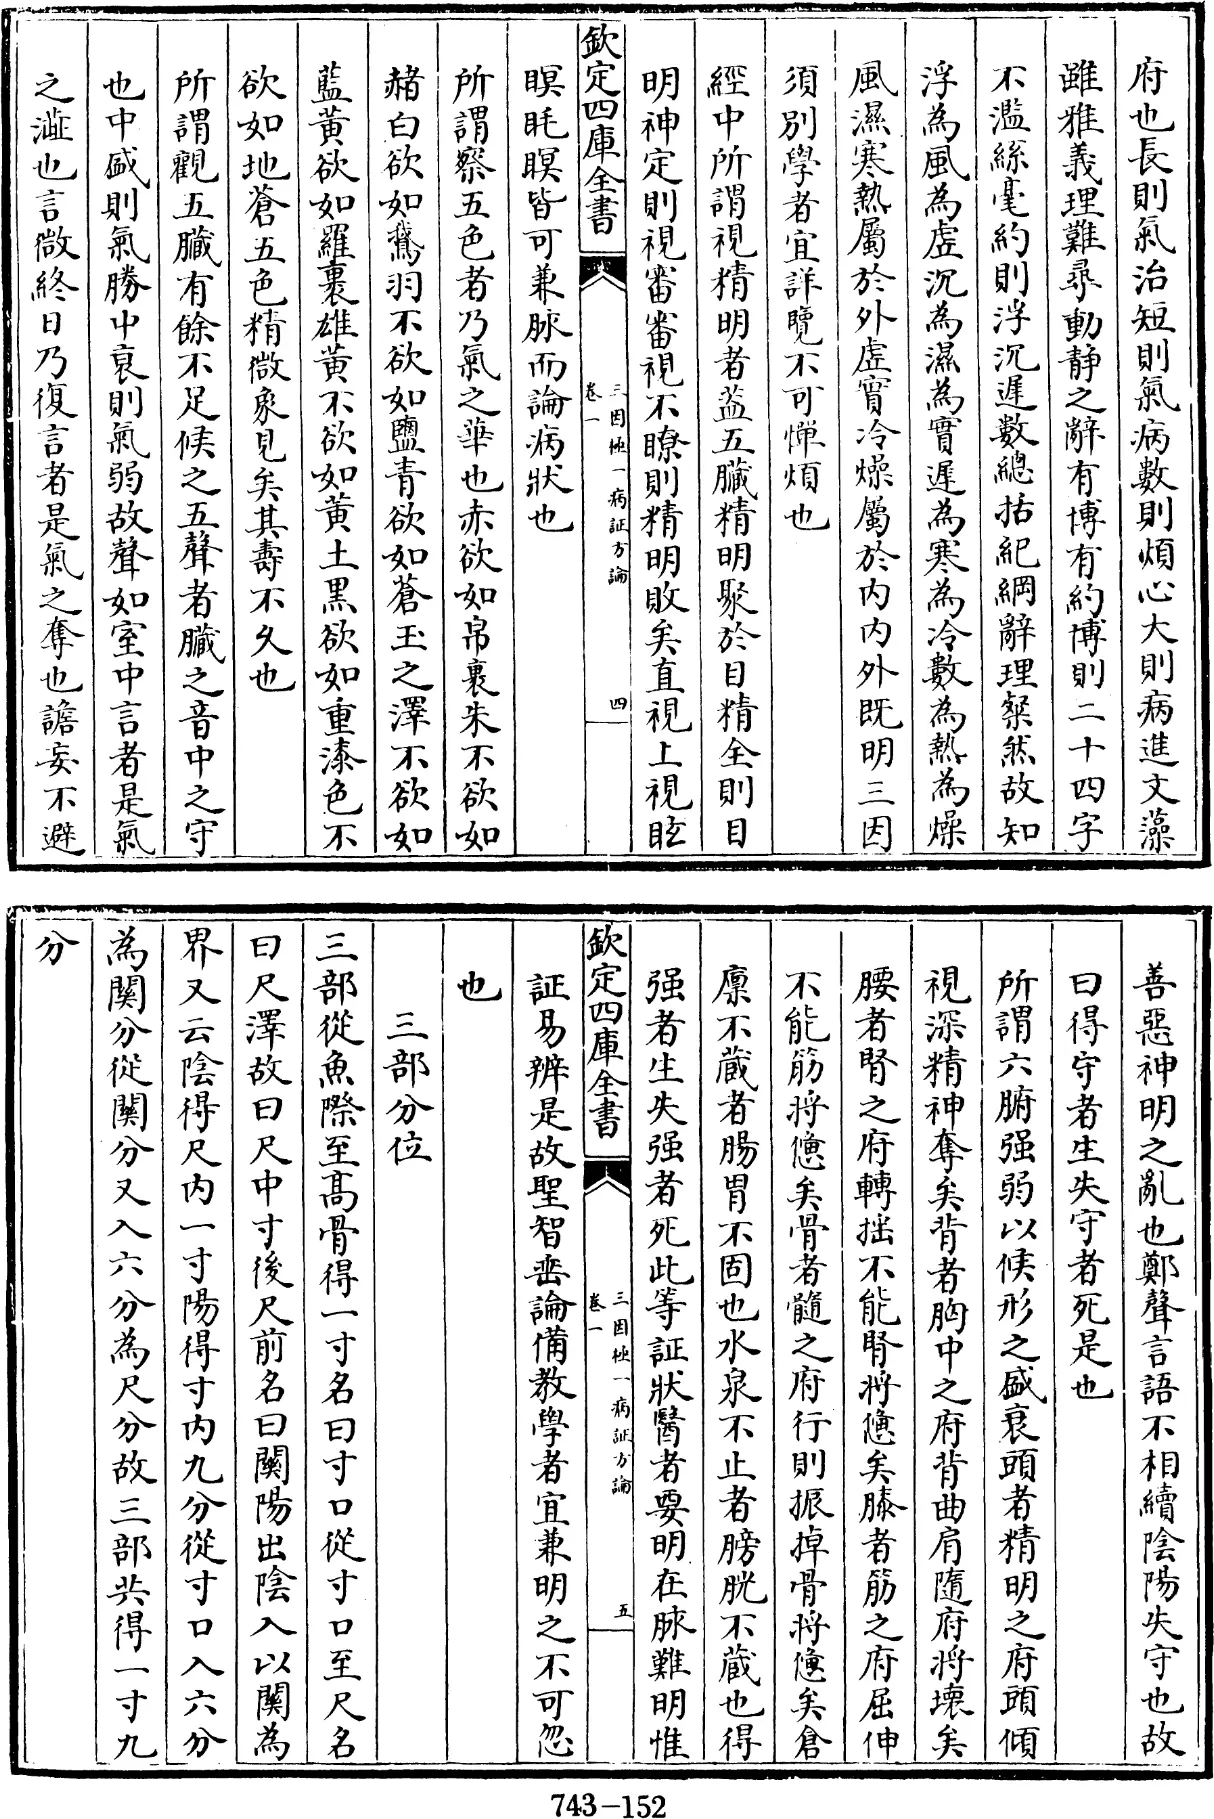 府也長則氣治短則氣病數則煩心大則病進文藻
雖雅義理難尋動静之辭有博有約博則二十四字
不濫絲毫約則浮沉遲數總括紀綱辭理粲然故知
浮為風為虛沉為濕為實遲為寒為冷數為熱為燥
風濕寒熱屬於外虛實冷燥屬於内内外既明三因
須別學者宜詳覽不可憚煩也
經中所謂視精明者蓋五臟精明聚於目精全則目
明神定則視審審視不瞭則精明敗矣直視上視眩
欽定四庫全書
三因極一病証方論
卷一
四
瞑眊瞑皆可兼脉而論病狀也
所謂察五色者乃氣之華也赤欲如帛裹朱不欲如
赭白欲如鵞羽不欲如鹽青欲如蒼玉之澤不欲如
藍黃欲如羅裹雄黃不欲如黃土黑欲如重漆色不
欲如地蒼五色精微象見矣其壽不久也
所謂觀五臟有餘不足候之五聲者臟之音中之守
也中盛則氣勝中衰則氣弱故聲如室中言者是氣
之澁也言微終日乃復言者是氣之奪也譫妄不避
善惡神明之亂也鄭聲言語不相續陰陽失守也故
曰得守者生失守者死是也
所謂六腑强弱以候形之盛衰頭者精明之府頭傾
視深精神奪矣背者胸中之府背曲肩隨府將壞矣
腰者腎之府轉摇不能腎將憊矣膝者筋之府屈伸
不能筋將憊矣骨者髓之府行則振掉骨將憊矣倉
廪不藏者腸胃不固也水泉不止者膀胱不藏也得
强者生失强者死此等証狀醫者要明在脉難明惟
欽定四庫全書
三因極一病証方論
卷一
五
証易辨是故聖智垂論備教學者宜兼明之不可忽
也
三部分位
三部從魚際至高骨得一寸名曰寸口從寸口至尺名
曰尺澤故曰尺中寸後尺前名曰關陽出陰入以關為
界又云陰得尺内一寸陽得寸内九分從寸口入六分
為關分從關分又入六分為尺分故三部共得一寸九
分
743-152